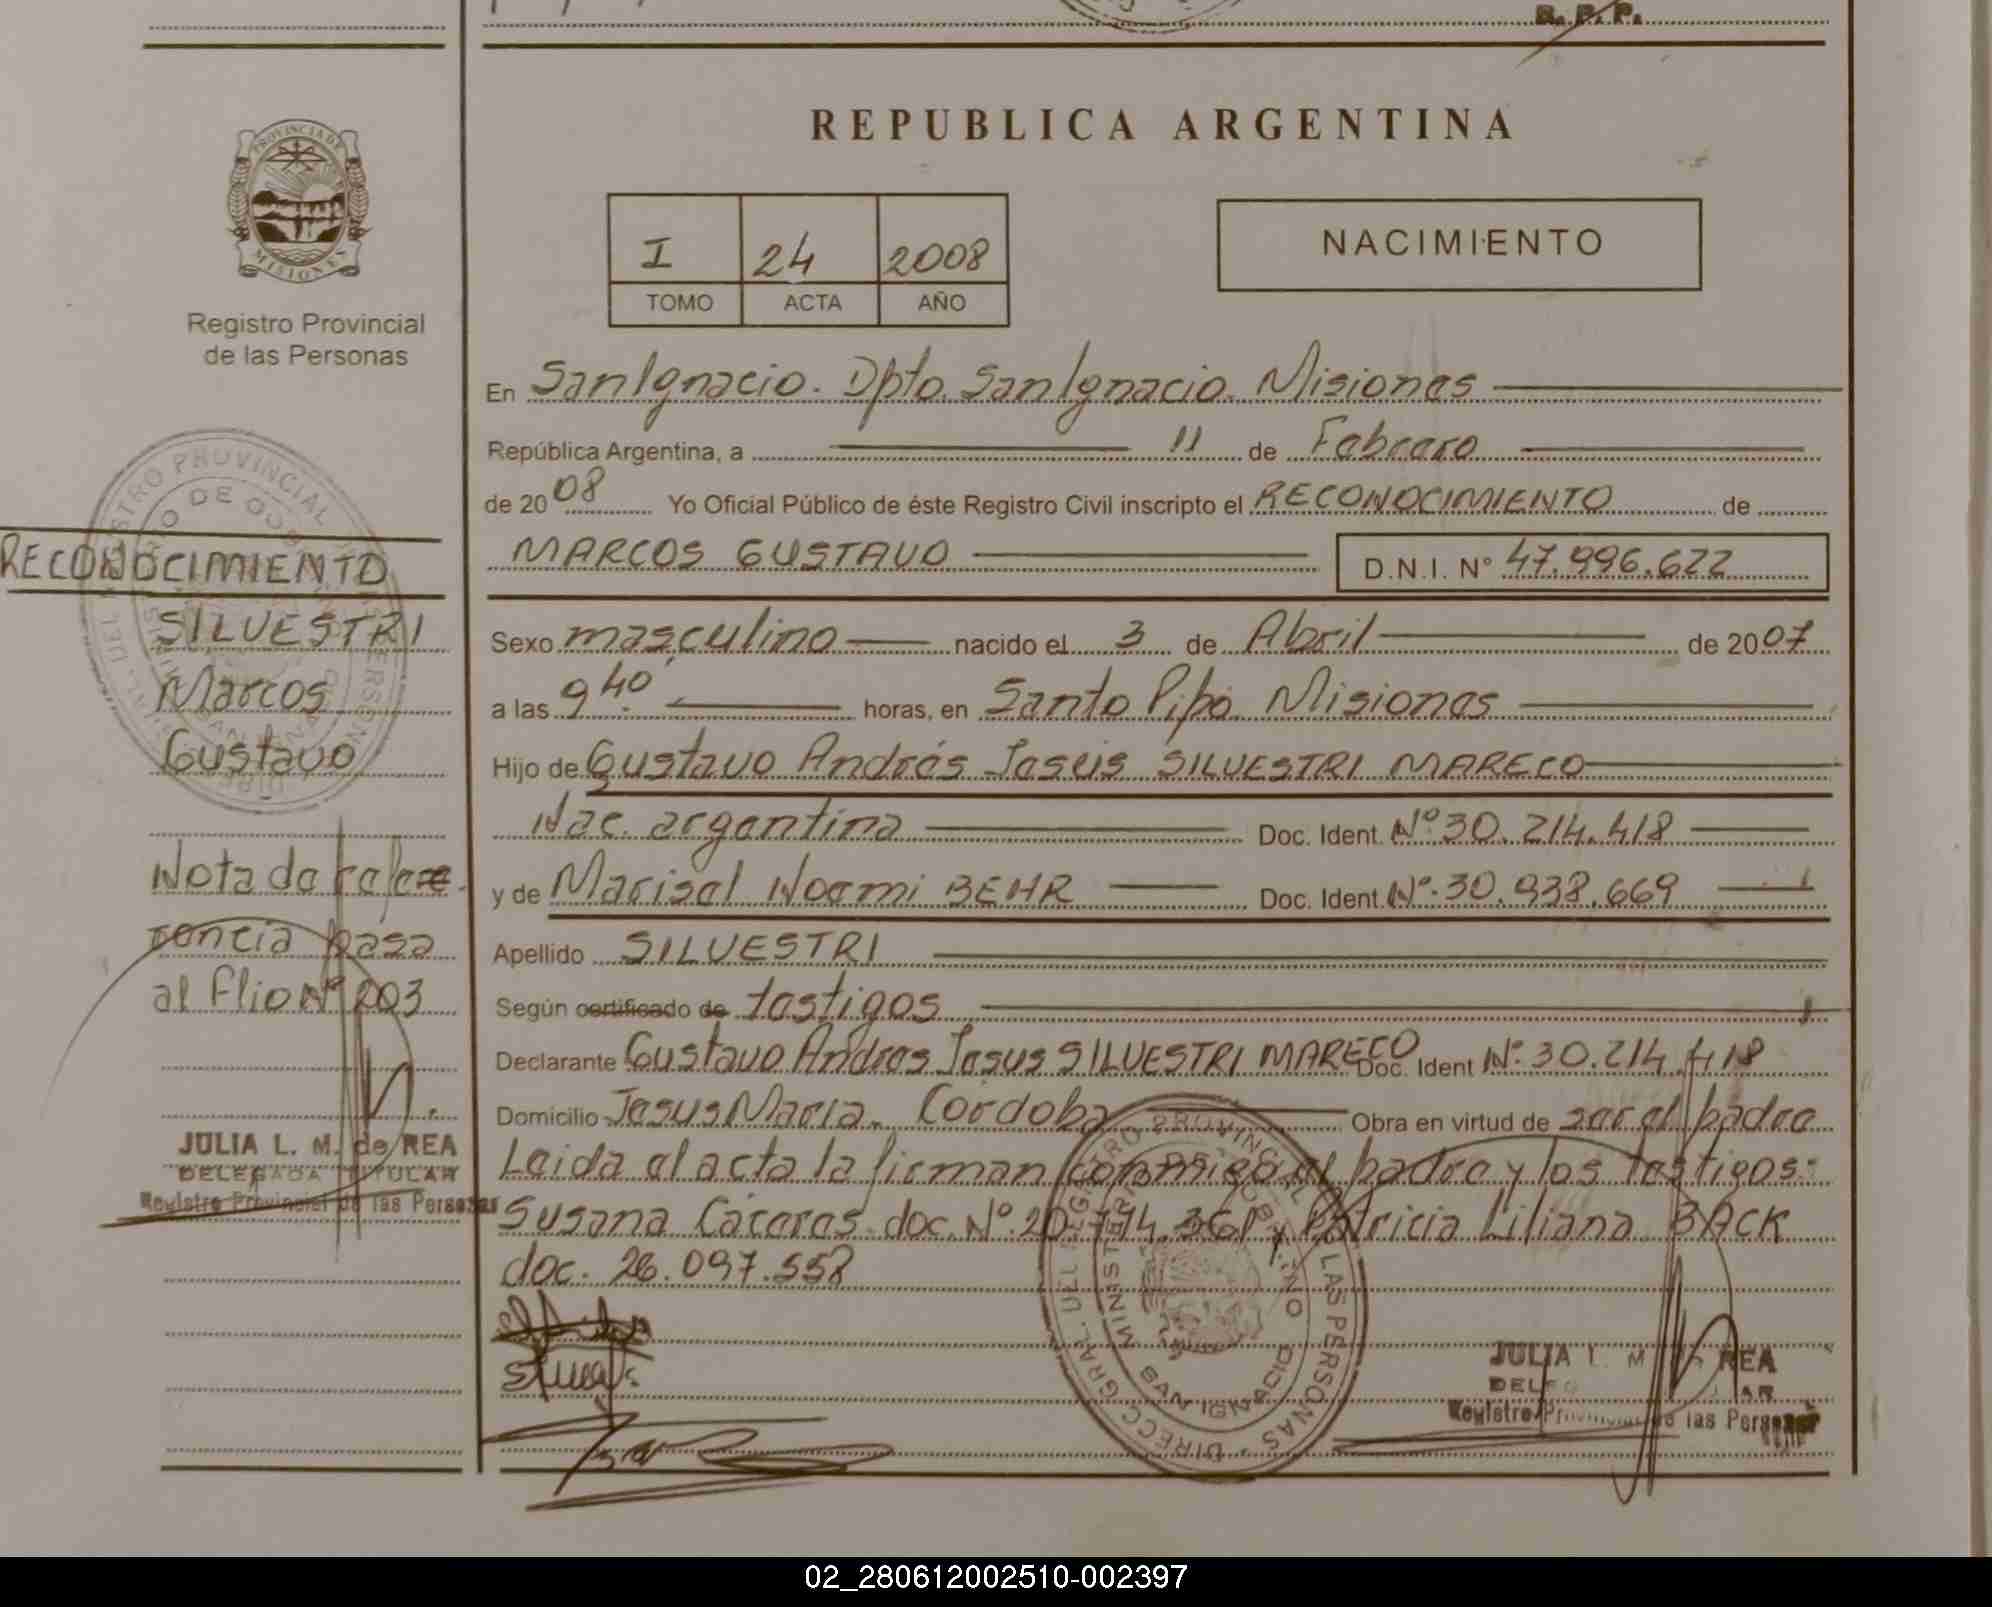 R. P. P.
PROVINCIA DE
MISIONES
Registro Provincial
de las Personas
RECONOCIMIENTO
SILVESTRI
Marcos
Gustavo
Nota de refe
rencia pasa
al flio Nº 203
JULIA L. M. de REA
DELEGADA TITULAR
Registro Provincial de las Personas
REPUBLICA ARGENTINA
I 24 2008
TOMO ACTA AÑO
NACIMIENTO
En San Ignacio. Dpto. San Ignacio. Misiones
República Argentina, a 11 de Febrero
de 2008 Yo Oficial Público de éste Registro Civil inscripto el RECONOCIMIENTO de
MARCOS GUSTAVO D.N.I. Nº 47.996.622
Sexo masculino nacido el 3 de Abril de 2007
a las 9 40 horas, en Santo Pipó. Misiones
Hijo de Gustavo Andrés Jesús SILVESTRI MARECO
Nac. argentina Doc. Ident. Nº 30.214.418
y de Marisel Noemi BEHR Doc. Ident. Nº. 30.938.669
Apellido SILVESTRI
Según certificado de testigos
Declarante Gustavo Andres Jesus SILVESTRI MARECO Doc. Ident Nº. 30.214.418
Domicilio Jesus Maria. Córdoba Obra en virtud de ser el padre
Leida el acta la firman conmigo el padre y los testigos:
Susana Cáceres doc. Nº. y Patricia Liliana BACK
doc. 26.097.558
DIRECC. GRAL. DEL REGISTRO PROVINCIAL DE LAS PERSONAS
MINISTERIO DE GOBIERNO
SAN IGNACIO
JULIA L. M. REA
Registro Provincial de las Personas
02_280612002510-002397